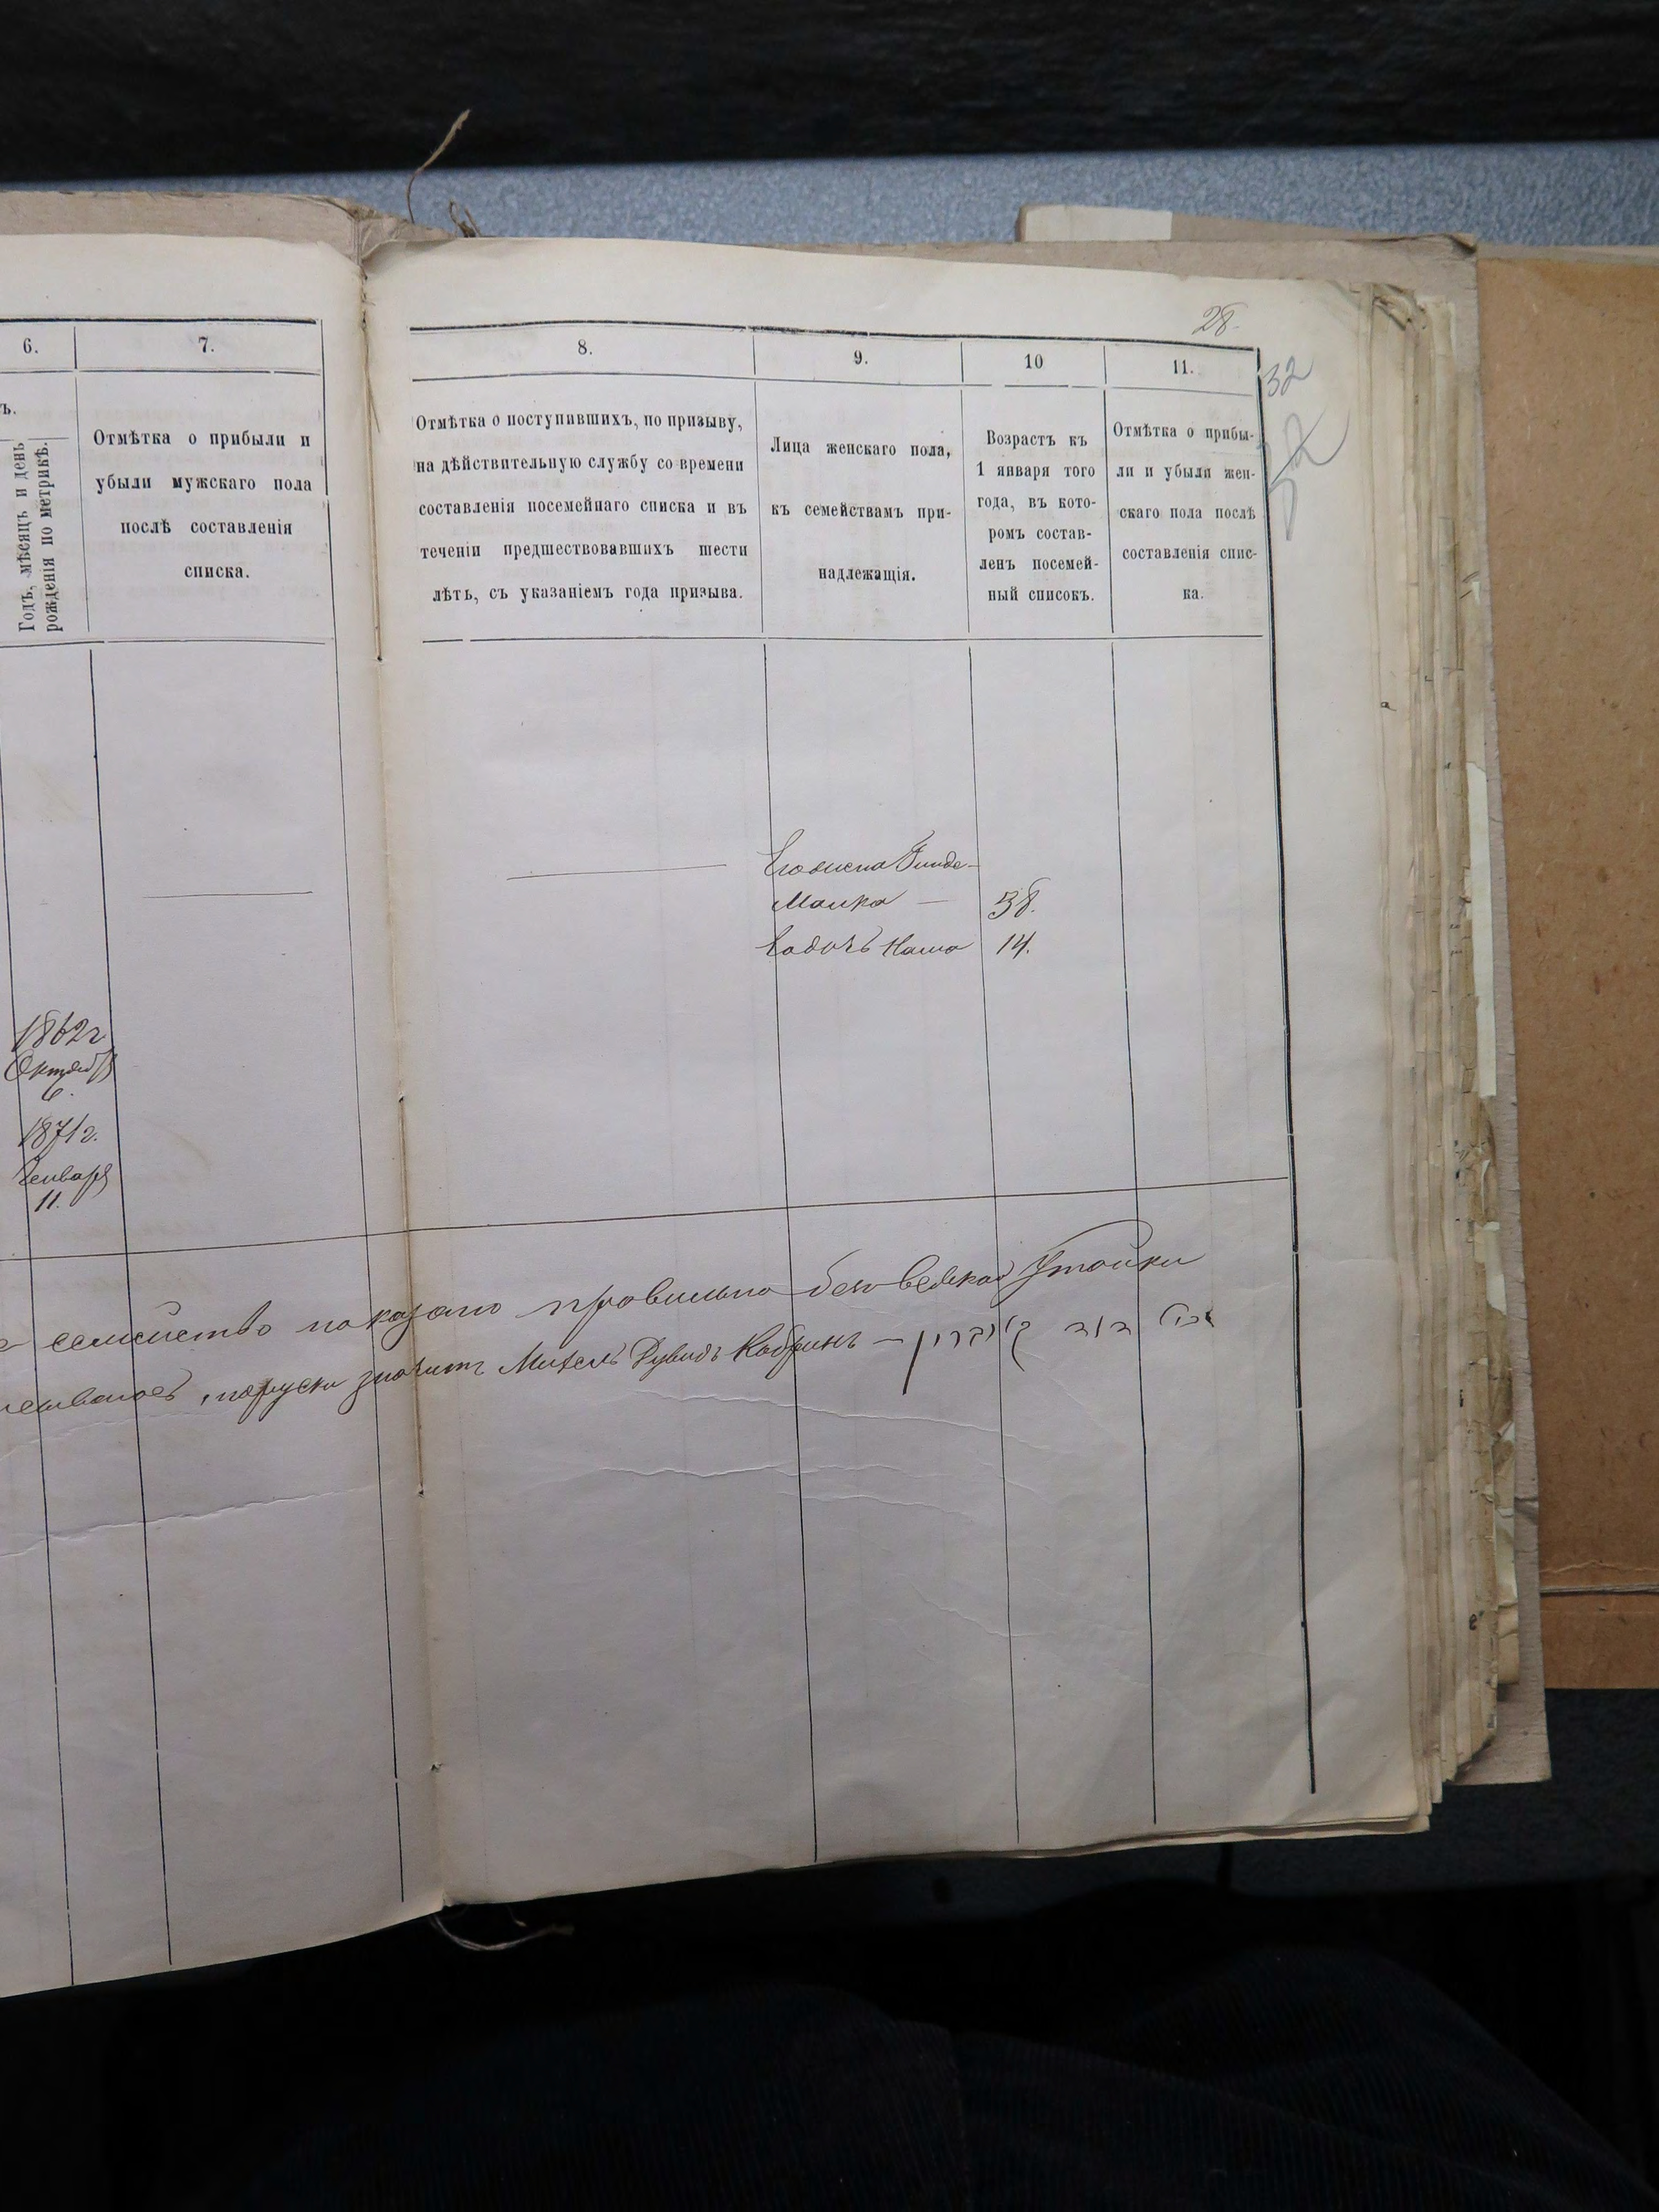 28.
32
6.
7.
8.
9.
10
11.
ъ.
Годъ, мѣсяцъ и день
рожденія по метрикѣ.
Отмѣтка о прибыли и
убыли мужскаго пола
послѣ составленія
списка.
Отмѣтка о поступившихъ, по призыву,
на дѣйствительную службу со времени
составленія посемейнаго списка и въ
теченіи предшествовавшихъ шести
лѣтъ, съ указаніемъ года призыва.
Лица женскаго пола,
къ семействамъ при-
надлежащія.
Возрастъ къ
1 января того
года, въ кото-
ромъ состав-
ленъ посемей-
ный списокъ.
Отмѣтка о прибы-
ли и убыли жен-
скаго пола послѣ
составленія спис-
ка.
Его жена
Малка — 38.
Его дочь Хаша 14.
1862г
Октября
6.
1871г.
Января
11.
семейство показано правильно безъ всякой утайки
значитъ Михель Дувидъ Кобринъ — קאברין דוד